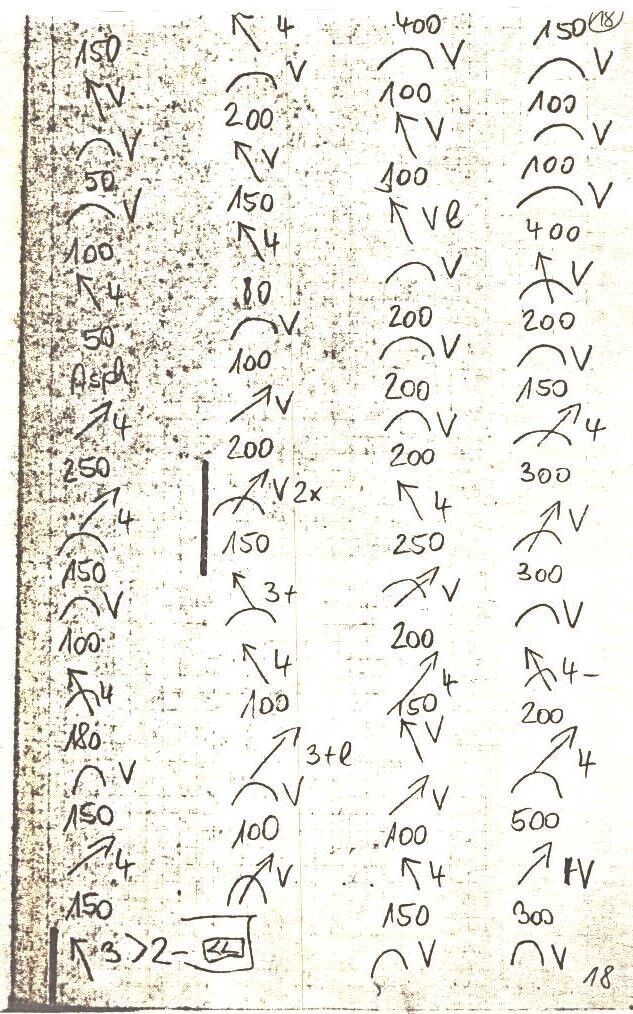 150
↖ V
⌒ V
50
⌒ V
100
↖ 4
50
Asph
↗ 4
250
↗ 4
⌒
150
⌒ V
100
↖ 4
180
⌒ V
150
↗ 4
150
↖ 3 > 2 -
↖ 4
⌒ V
200
↖ V
150
↖ 4
80
⌒ V
100
↗ V
200
↗ V 2x
150
↖ 3+
⌒
↖ 4
100
↗ 3+l
⌒ V
100
↗ V
400
⌒ V
100
↖ V
100
↖ V l
⌒ V
200
⌒ V
200
⌒ V
200
↖ 4
250
↗ V
200
↗ 4
150
↖ V
↗ V
100
↖ 4
150
⌒ V
150 18
⌒ V
100
⌒ V
100
⌒ V
400
↖ V
200
⌒ V
150
↗ 4
300
↗ V
300
⌒ V
↖ 4 -
200
↗ 4
⌒
500
↗ V
300
⌒ V
18